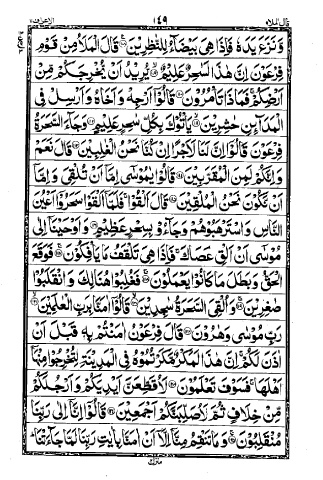 قال الملاه ١٤٩ الاعراف
وَّنَزَعَ يَدَهٗ فَاِذَا هِيَ بَيْضَآءُ لِلنّٰظِرِيْنَ قَالَ الْمَلَاُ مِنْ قَوْمِ
فِرْعَوْنَ اِنَّ هٰذَا لَسٰحِرٌ عَلِيْمٌ يُّرِيْدُ اَنْ يُّخْرِجَكُمْ مِّنْ
اَرْضِكُمْ فَمَاذَا تَاْمُرُوْنَ قَالُوْٓا اَرْجِهْ وَاَخَاهُ وَاَرْسِلْ فِي
الْمَدَآئِنِ حٰشِرِيْنَ يَاْتُوْكَ بِكُلِّ سٰحِرٍ عَلِيْمٍ وَجَآءَ السَّحَرَةُ
فِرْعَوْنَ قَالُوْٓا اِنَّ لَنَا لَاَجْرًا اِنْ كُنَّا نَحْنُ الْغٰلِبِيْنَ قَالَ نَعَمْ
وَاِنَّكُمْ لَمِنَ الْمُقَرَّبِيْنَ قَالُوْا يٰمُوْسٰٓى اِمَّآ اَنْ تُلْقِيَ وَاِمَّآ
اَنْ نَّكُوْنَ نَحْنُ الْمُلْقِيْنَ قَالَ اَلْقُوْا فَلَمَّآ اَلْقَوْا سَحَرُوْٓا اَعْيُنَ
النَّاسِ وَاسْتَرْهَبُوْهُمْ وَجَآءُوْ بِسِحْرٍ عَظِيْمٍ وَاَوْحَيْنَآ اِلٰى
مُوْسٰٓى اَنْ اَلْقِ عَصَاكَ فَاِذَا هِيَ تَلْقَفُ مَا يَاْفِكُوْنَ فَوَقَعَ
الْحَقُّ وَبَطَلَ مَا كَانُوْا يَعْمَلُوْنَ فَغُلِبُوْا هُنَالِكَ وَانْقَلَبُوْا
صٰغِرِيْنَ وَاُلْقِيَ السَّحَرَةُ سٰجِدِيْنَ قَالُوْٓا اٰمَنَّا بِرَبِّ الْعٰلَمِيْنَ
رَبِّ مُوْسٰى وَهٰرُوْنَ قَالَ فِرْعَوْنُ اٰمَنْتُمْ بِهٖ قَبْلَ اَنْ
اٰذَنَ لَكُمْ اِنَّ هٰذَا لَمَكْرٌ مَّكَرْتُمُوْهُ فِي الْمَدِيْنَةِ لِتُخْرِجُوْا مِنْهَآ
اَهْلَهَا فَسَوْفَ تَعْلَمُوْنَ لَاُقَطِّعَنَّ اَيْدِيَكُمْ وَاَرْجُلَكُمْ
مِّنْ خِلَافٍ ثُمَّ لَاُصَلِّبَنَّكُمْ اَجْمَعِيْنَ قَالُوْٓا اِنَّآ اِلٰى رَبِّنَا
مُنْقَلِبُوْنَ وَمَا تَنْقِمُ مِنَّآ اِلَّآ اَنْ اٰمَنَّا بِاٰيٰتِ رَبِّنَا لَمَّا جَآءَتْنَا
منزل